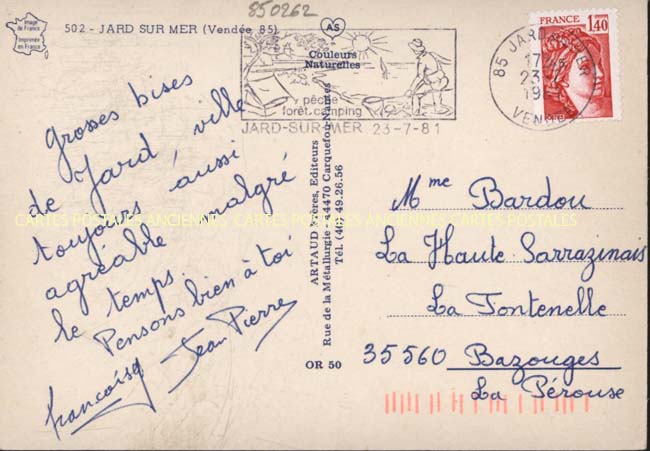 850262
Image de France
Imprimée en France
502 - JARD SUR MER (Vendée 85)
AS
Couleurs
Naturelles
pêche
forêt.camping
JARD-SUR-MER 23-7-81
85 JARD
17
23
19
VENDEE
FRANCE
1,40
Grosses bises
de Jard, ville
toujours aussi
agréable malgré
le temps.
Pensons bien à toi
francoise Jean Pierre
ARTAUD Frères, Editeurs
Rue de la Métallurgie - 44470 Carquefou-Nantes
Tél. (40) 49.26.56
OR 50
CARTES POSTALES ANCIENNES CARTES POSTALES ANCIENNES CARTES POSTALES
Mme Bardou
La Haute Sarrazinais
La Fontenelle
35560 Bazouges
La Pérouse